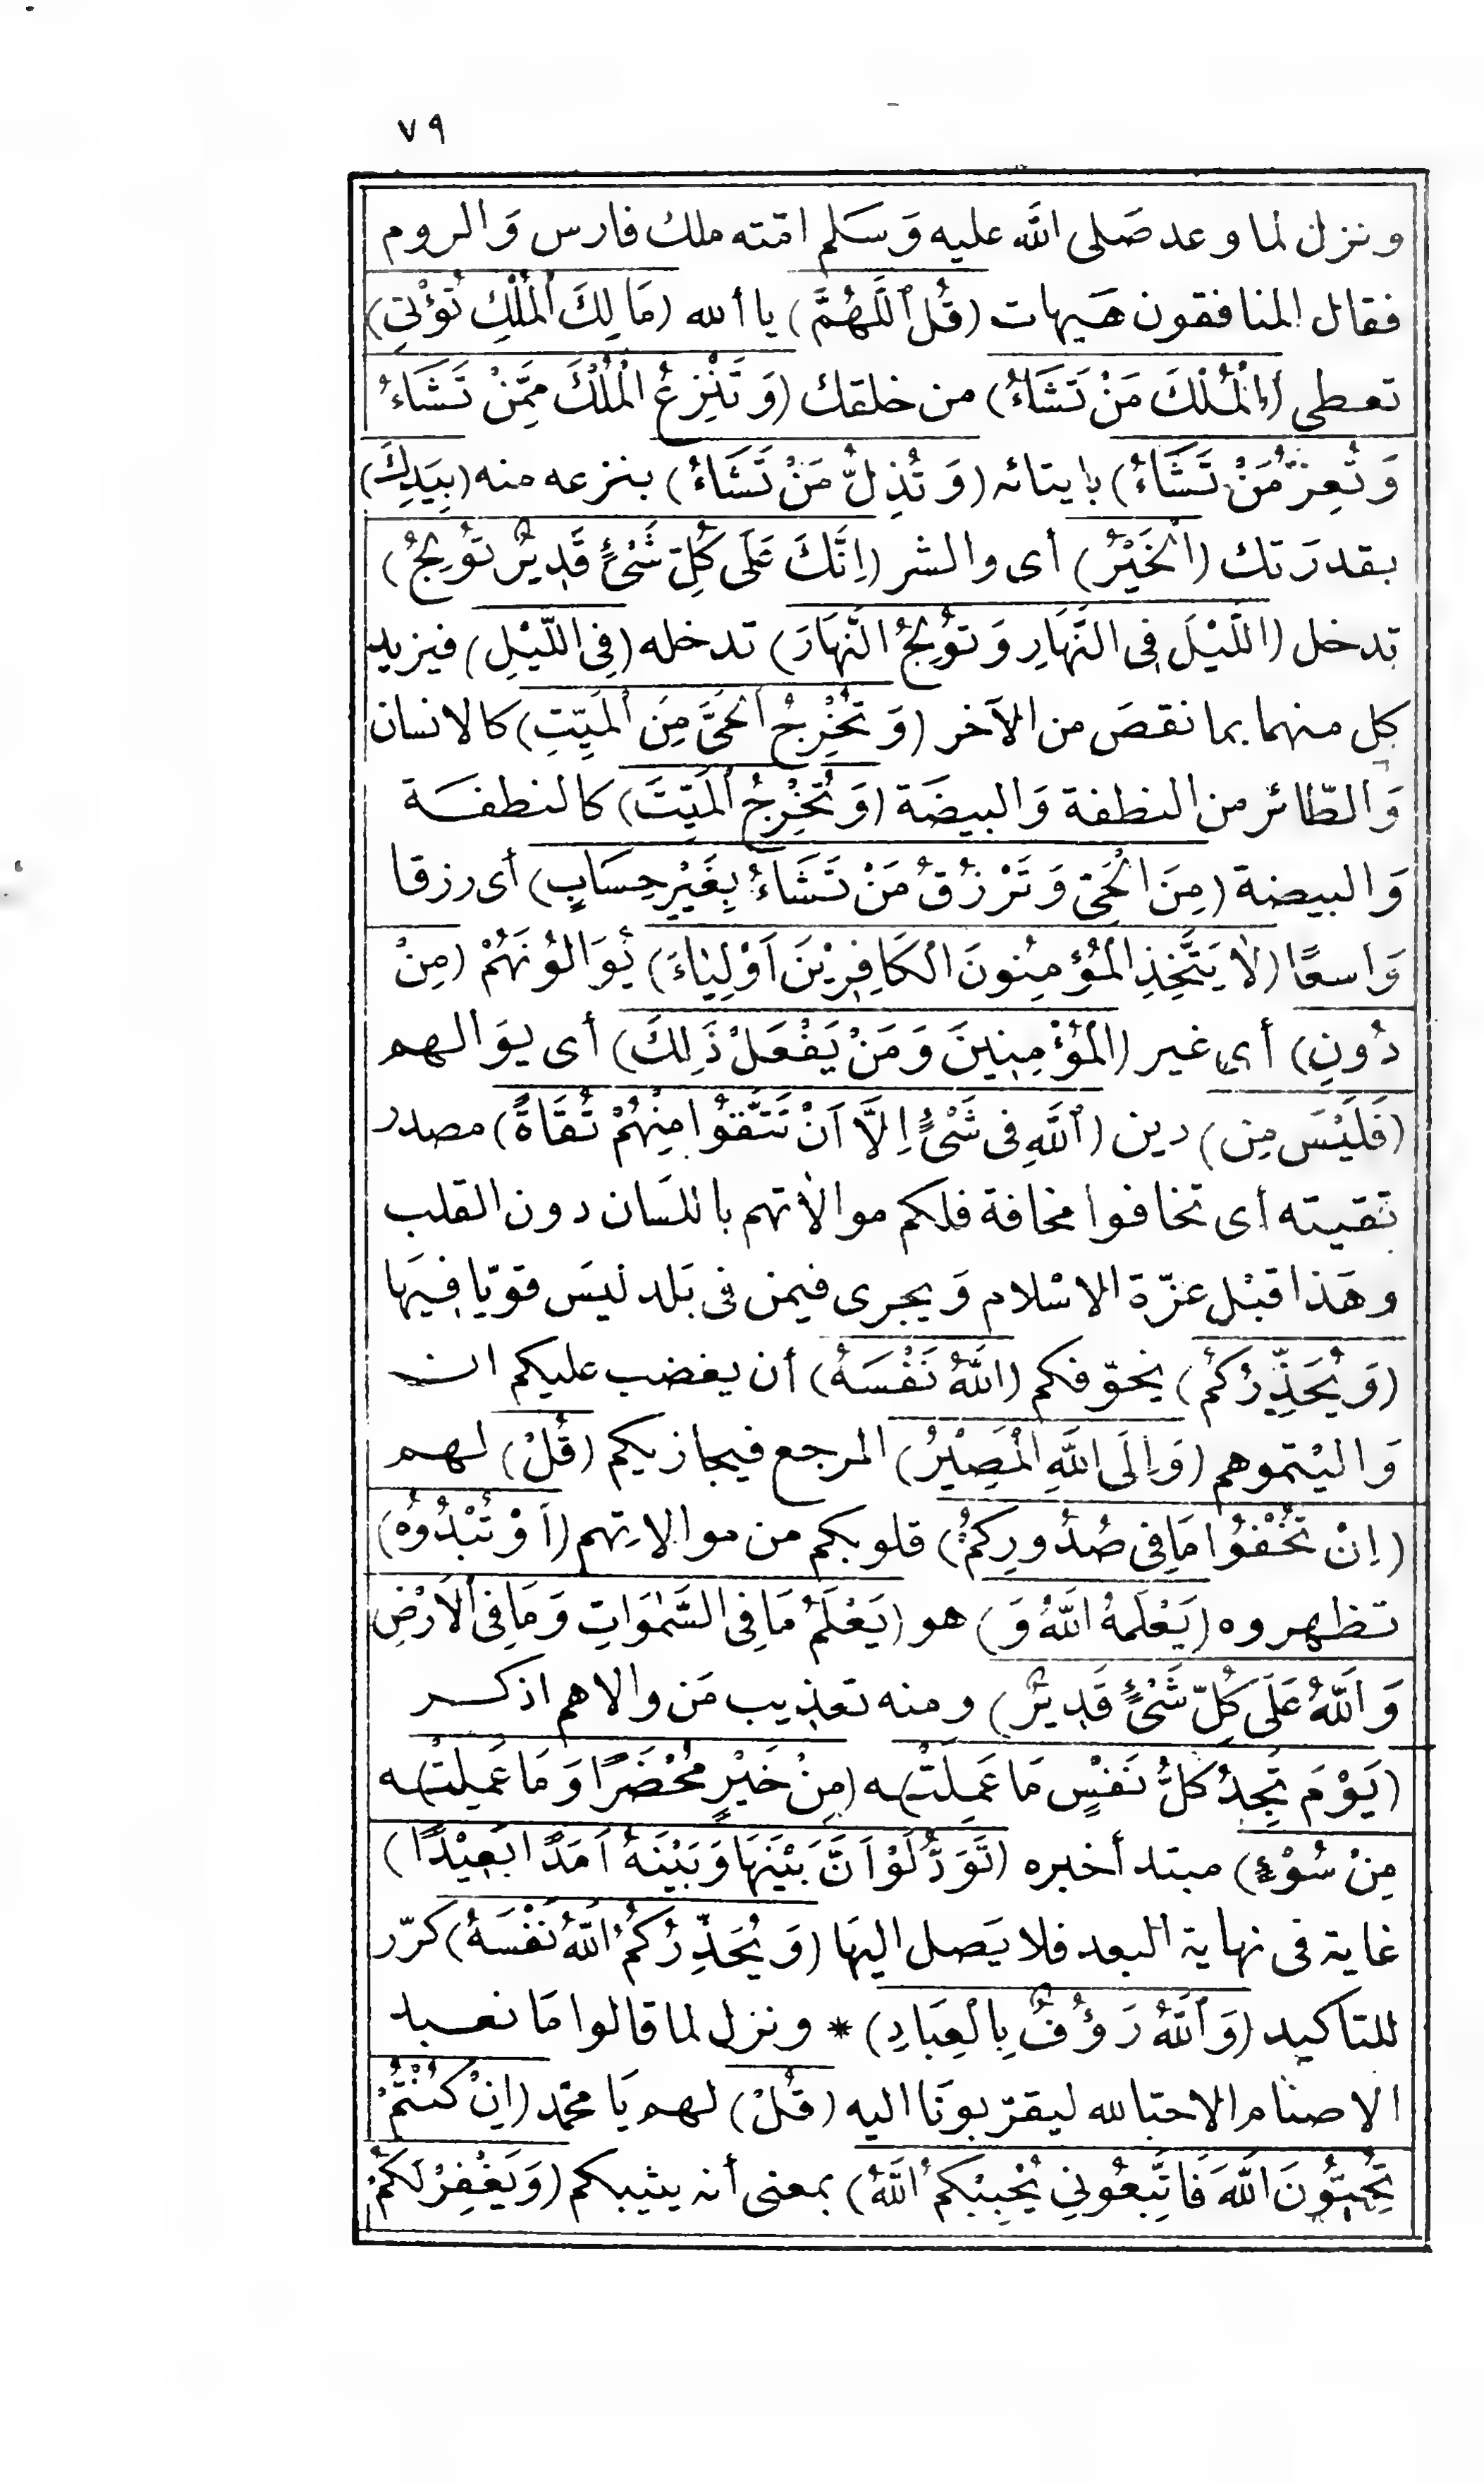 ٧٩
ونزل لما وعد صَلى الله عليه وَسَلم امّته ملك فارس وَالروم
فقال المنافقون هَيهات (قُلِ ٱللَّهُمَّ) يا أَلله (مَالِكَ الْمُلْكِ تُؤْتِي)
تعطى (الْمُلْكَ مَنْ تَشَاءُ) من خلقك (وَتَنْزِعُ الْمُلْكَ مِمَّنْ تَشَاءُ
وَتُعِزُّ مَنْ تَشَاءُ) بايتائه (وَتُذِلُّ مَنْ تَشَاءُ) بنزعه منه (بِيَدِكَ)
بقدرَتك (الْخَيْرُ) أى والشر (اِنَّكَ عَلَى كُلِّ شَىْءٍ قَدِيرٌ تُولِجُ)
تدخل (اللَّيْلَ فِى النَّهَارِ وَتُولِجُ النَّهَارَ) تدخله (فِى اللَّيْلِ) فيزيد
كل منهما بما نقصَ من الآخر (وَتُخْرِجُ الْحَىَّ مِنَ الْمَيِّتِ) كالانسان
وَالطّائر من النطفة وَالبيضَة (وَتُخْرِجُ الْمَيِّتَ) كالنطفَة
وَالبيضة (مِنَ الْحَىِّ وَتَرْزُقُ مَنْ تَشَاءُ بِغَيْرِ حِسَابٍ) أى رزقا
وَاسعًا (لَا يَتَّخِذِ الْمُؤْمِنُونَ الْكَافِرِيْنَ اَوْلِيَاءَ) يُوَالُونَهُمْ (مِنْ
دُونِ) أى غير (الْمُؤْمِنِينَ وَمَنْ يَفْعَلْ ذَلِكَ) أى يوَالهم
(فَلَيْسَ مِن) دين (ٱللَّهِ فِى شَىْءٍ اِلَّا اَنْ تَتَّقُوا مِنْهُمْ تُقَاةً) مصدر
تقيته أى تخافوا مخافة فلكم موالاتهم باللسَان دون القلب
وهَذا قبْل عزّة الاسْلام وَيجرى فيمن فى بَلد ليسَ قويّا فيهَا
(وَيُحَذِّرُكُمُ) يخوّفكم (اللَّهُ نَفْسَهُ) أن يغضب عليكم ان
وَاليْتموهم (وَاِلَى اللَّهِ الْمَصِيْرُ) المرجع فيجازيكم (قُلْ) لهم
(اِنْ تُخْفُوا مَا فِى صُدُورِكُمْ) قلوبكم من موالاتِهم (اَوْ تُبْدُوهُ)
تظهروه (يَعْلَمْهُ اللَّهُ وَ) هو (يَعْلَمُ مَا فِى السَّمٰوَاتِ وَمَا فِى الْاَرْضِ
وَاللَّهُ عَلَى كُلِّ شَىْءٍ قَدِيرٌ) ومنه تعذيب مَن والاهم اذكر
(يَوْمَ تَجِدُ كُلُّ نَفْسٍ مَا عَمِلَتْ)ـه (مِنْ خَيْرٍ مُحْضَرًا وَمَا عَمِلَتْ)ـه
مِنْ سُوْءٍ) مبتدأ خبره (تَوَدُّ لَوْ اَنَّ بَيْنَهَا وَبَيْنَهُ اَمَدًا بَعِيْدًا)
غاية فى نهاية البعد فلا يَصل اليهَا (وَيُحَذِّرُكُمُ اللَّهُ نَفْسَهُ) كرّر
للتاكيد (وَاللَّهُ رَؤُفٌ بِالْعِبَادِ) * ونزل لما قالوا مَا نعبد
الاصنام الاحبا لله ليقرّبونَا اليه (قُلْ) لهم يَا محمّد (اِنْ كُنْتُمْ
تُحِبُّونَ اللَّهَ فَاتَّبِعُونِي يُحْبِبْكُمُ اللَّهُ) بمعنى أنه يثيبكم (وَيَغْفِرْ لَكُمْ